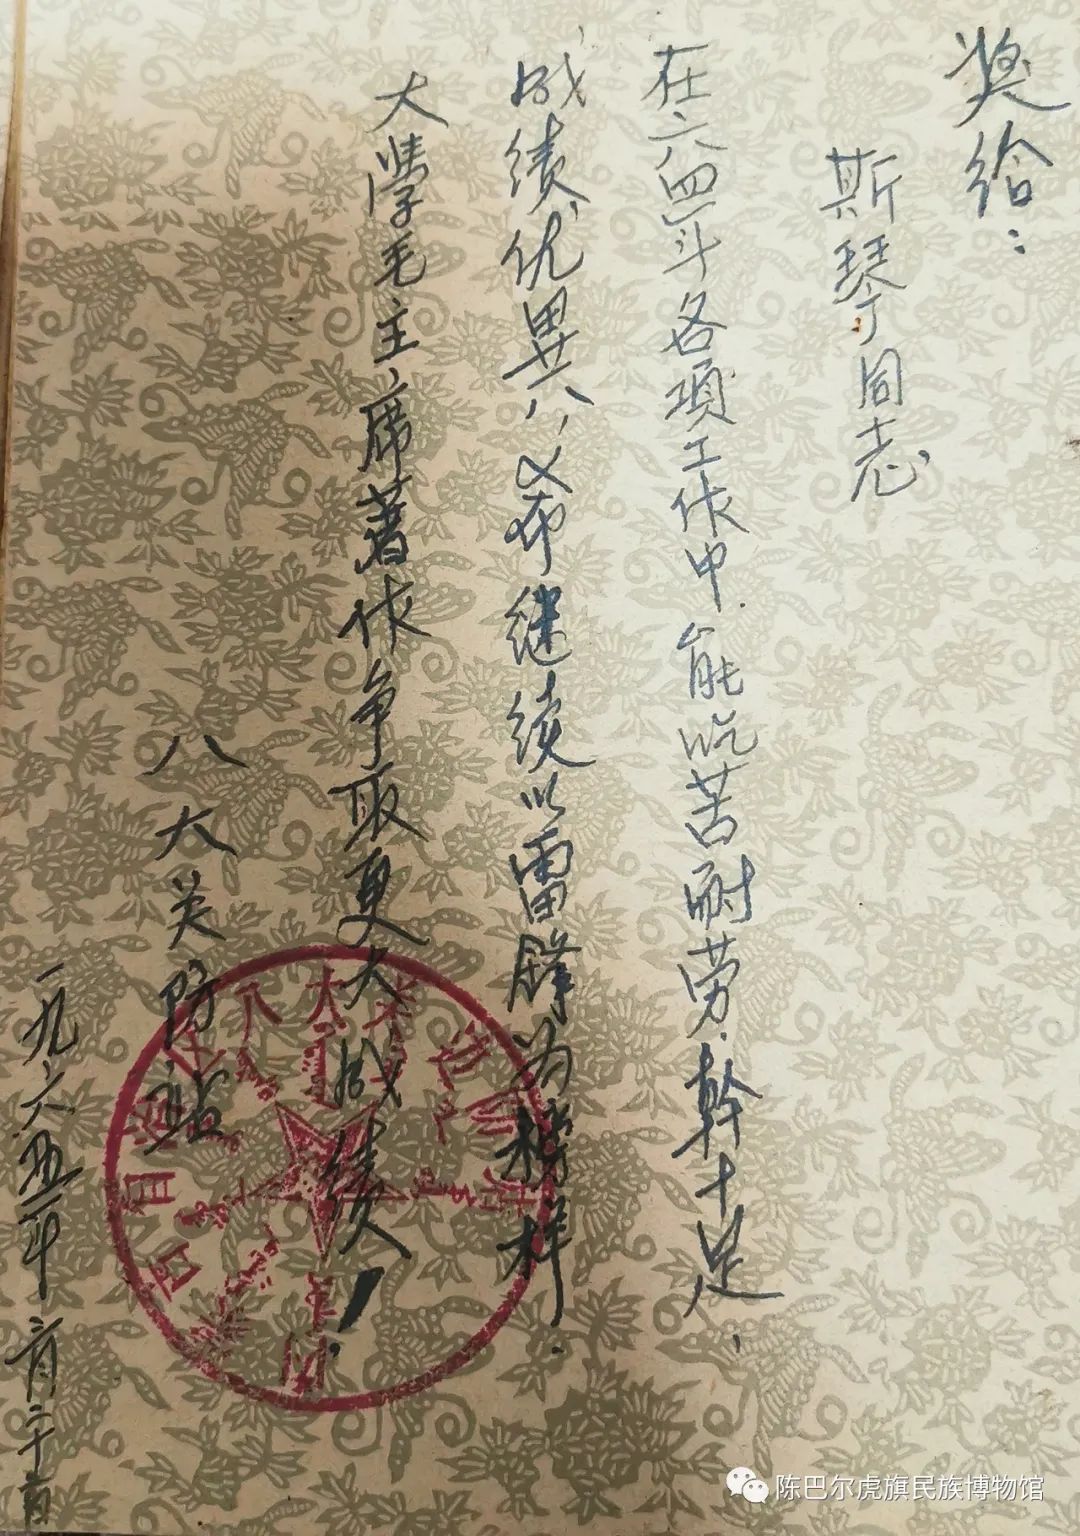 奖给：
斯琴同志
在六四年各項工作中.能吃苦耐劳.幹十足.
成绩优異.希继续以雷鋒为榜样.
大學毛主席著作争取更大成绩!
八大关防站
一九六五年 月二十 
八大关边防
陈巴尔虎旗民族博物馆